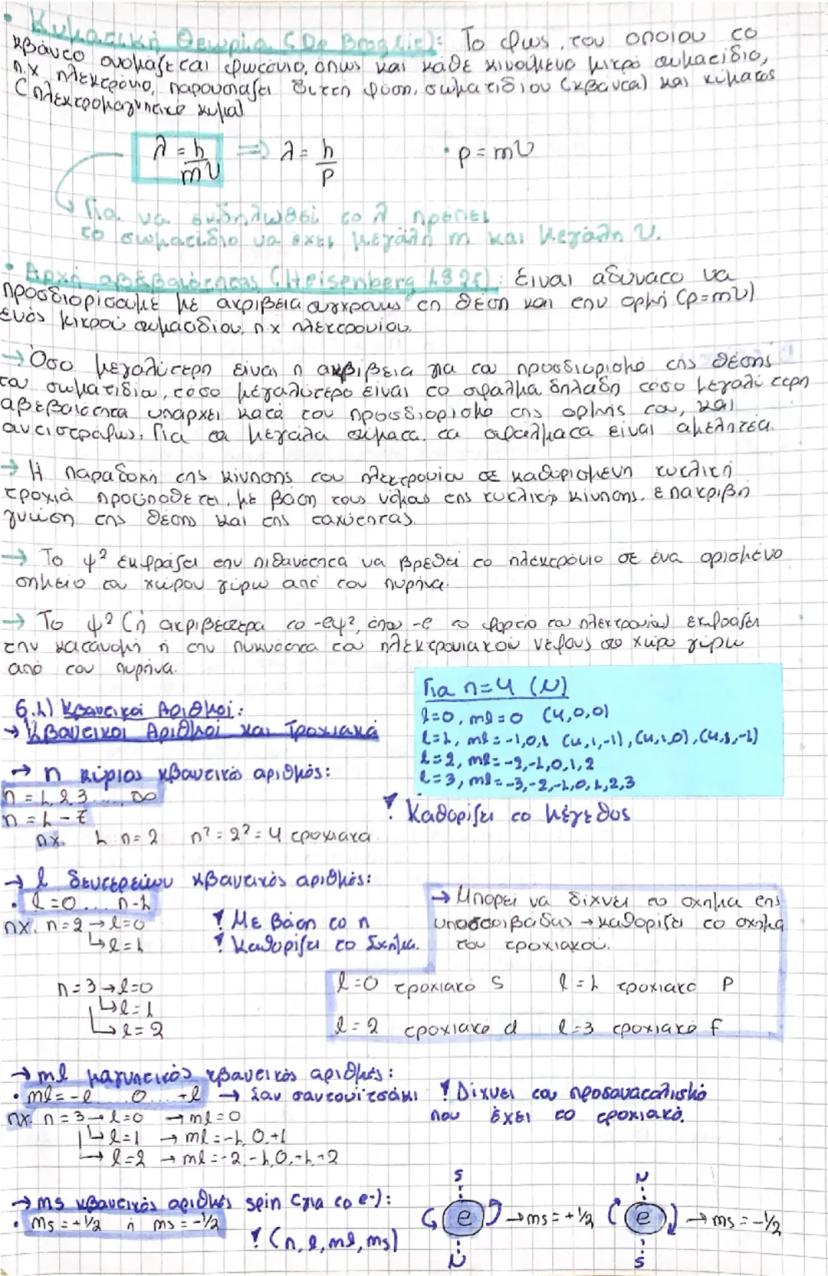 • Κυματική Θεωρία (De Broglie): Το φως, του οποίου το
κβάντο ονομάζεται φωτόνιο, όπως και κάθε κινούμενο μικρό σωματίδιο,
π.χ ηλεκτρόνιο, παρουσιάζει διττή φύση, σωματιδίου (κβάντα) και κύματος
(ηλεκτρομαγνητικό κύμα)
λ = h/mυ ⇒ λ = h/p • p = mυ
Για να εκδηλωθεί το λ πρέπει
το σωματίδιο να έχει μεγάλη m και μεγάλη υ.
• Αρχή αβεβαιότητας (Heisenberg 192): Είναι αδύνατο να
προσδιορίσουμε με ακρίβεια συγχρόνως τη θέση και την ορμή (p=mυ)
ενός μικρού σωματιδίου, πχ ηλεκτρονίου.
→ Όσο μεγαλύτερη είναι η ακρίβεια για τον προσδιορισμό της θέσης
του σωματιδίου, τόσο μεγαλύτερο είναι το σφάλμα δηλαδή τόσο μεγαλύτερη
αβεβαιότητα υπάρχει κατά τον προσδιορισμό της ορμής του, και
αντιστρόφως. Για τα μεγάλα σώματα, τα σφάλματα είναι αμελητέα.
→ Η παραδοχή της κίνησης του ηλεκτρονίου σε καθορισμένη κυκλική
τροχιά προϋποθέτει, με βάση τους νόμους της κυκλικής κίνησης, επακριβή
γνώση της θέσης και της ταχύτητας.
→ Το ψ² εκφράζει την πιθανότητα να βρεθεί το ηλεκτρόνιο σε ένα ορισμένο
σημείο του χώρου γύρω από τον πυρήνα.
→ Το ψ² (ή ακριβέστερα το -eψ², όπου -e το φορτίο του ηλεκτρονίου) εκφράζει
την κατανομή ή την πυκνότητα του ηλεκτρονιακού νέφους στο χώρο γύρω
από τον πυρήνα.
Για n=4 (N)
l=0, ml=0 (4,0,0)
l=1, ml=-1,0,1 (4,1,-1), (4,1,0), (4,1,-1)
l=2, ml=-2,-1,0,1,2
l=3, ml=-3,-2,-1,0,1,2,3
6.1) Κβαντικοί Αριθμοί:
→ Κβαντικοί Αριθμοί και Τροχιακά
→ n κύριος κβαντικός αριθμός:
n = 1, 2, 3 ... ∞
! Καθορίζει το μέγεθος
n = 1 - 7
πχ. L n=2 n² = 2² = 4 τροχιακά
→ l δευτερεύων κβαντικός αριθμός:
• l=0 ... n-1
πχ. n=2 → l=0
↳ l=1
! Με βάση το n
! Καθορίζει το Σχήμα.
→ Μπορεί να δίχνει το σχήμα της
υποστοιβάδας → καθορίζει το σχήμα
του τροχιακού.
n=3 → l=0
↳ l=1
↳ l=2
l=0 τροχιακό s l=1 τροχιακό p
l=2 τροχιακό d l=3 τροχιακό f
→ ml μαγνητικός κβαντικός αριθμός:
• ml=-l ... 0 ... +l → Σαν σαντουιτσάκι ! Δίχνει τον προσανατολισμό
που έχει το τροχιακό.
πχ. n=3 → l=0 → ml=0
↳ l=1 → ml=-1, 0, +1
↳ l=2 → ml=-2 -1, 0, +1, +2
→ ms κβαντικός αριθμός spin (για το e-):
• ms = +1/2 ή ms = -1/2
! (n, l, ml, ms)
S
e → ms = +1/2
N
N
e → ms = -1/2
S